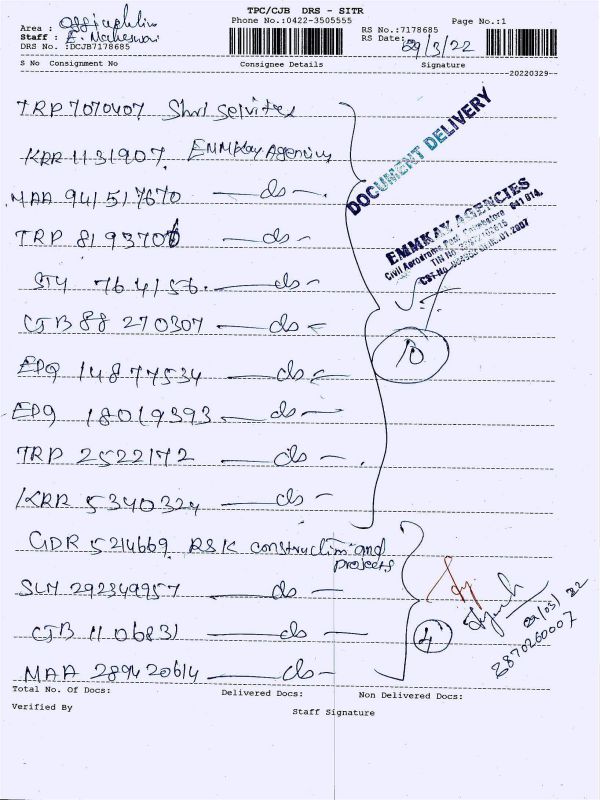 TPC/CJB DRS - SITR
Area :
Phone No.:0422-3505555
Page No.:1
Staff : E. Maheswari
RS No.:7178685
DRS No. :DCJB7178685
RS Date: 29/3/22
S No Consignment No Consignee Details Signature
20220329
TRP 7070407 Shri Services
KRR 1131907. EMMKay Agencies
MAA 941517670 —do—.
TRP 8193706 —do—
764156. —do—
CJB 88 270307 —do—
EPQ 14877534 —do—
EPQ 18019393 —do—
TRP 2522172 —do—.
KRR 5340324 —do—
GDR 5214669. RSK construction and
projects
SLM 292349957 —do—
CJB 1106831 —do—
MAA 289420614 —do—
DOCUMENT DELIVERY
EMMKAY AGENCIES
Civil Aerodrome Post, Coimbatore 641 014.
10
4
29/03/22
2870260007
Total No. Of Docs: Delivered Docs: Non Delivered Docs:
Verified By
Staff Signature